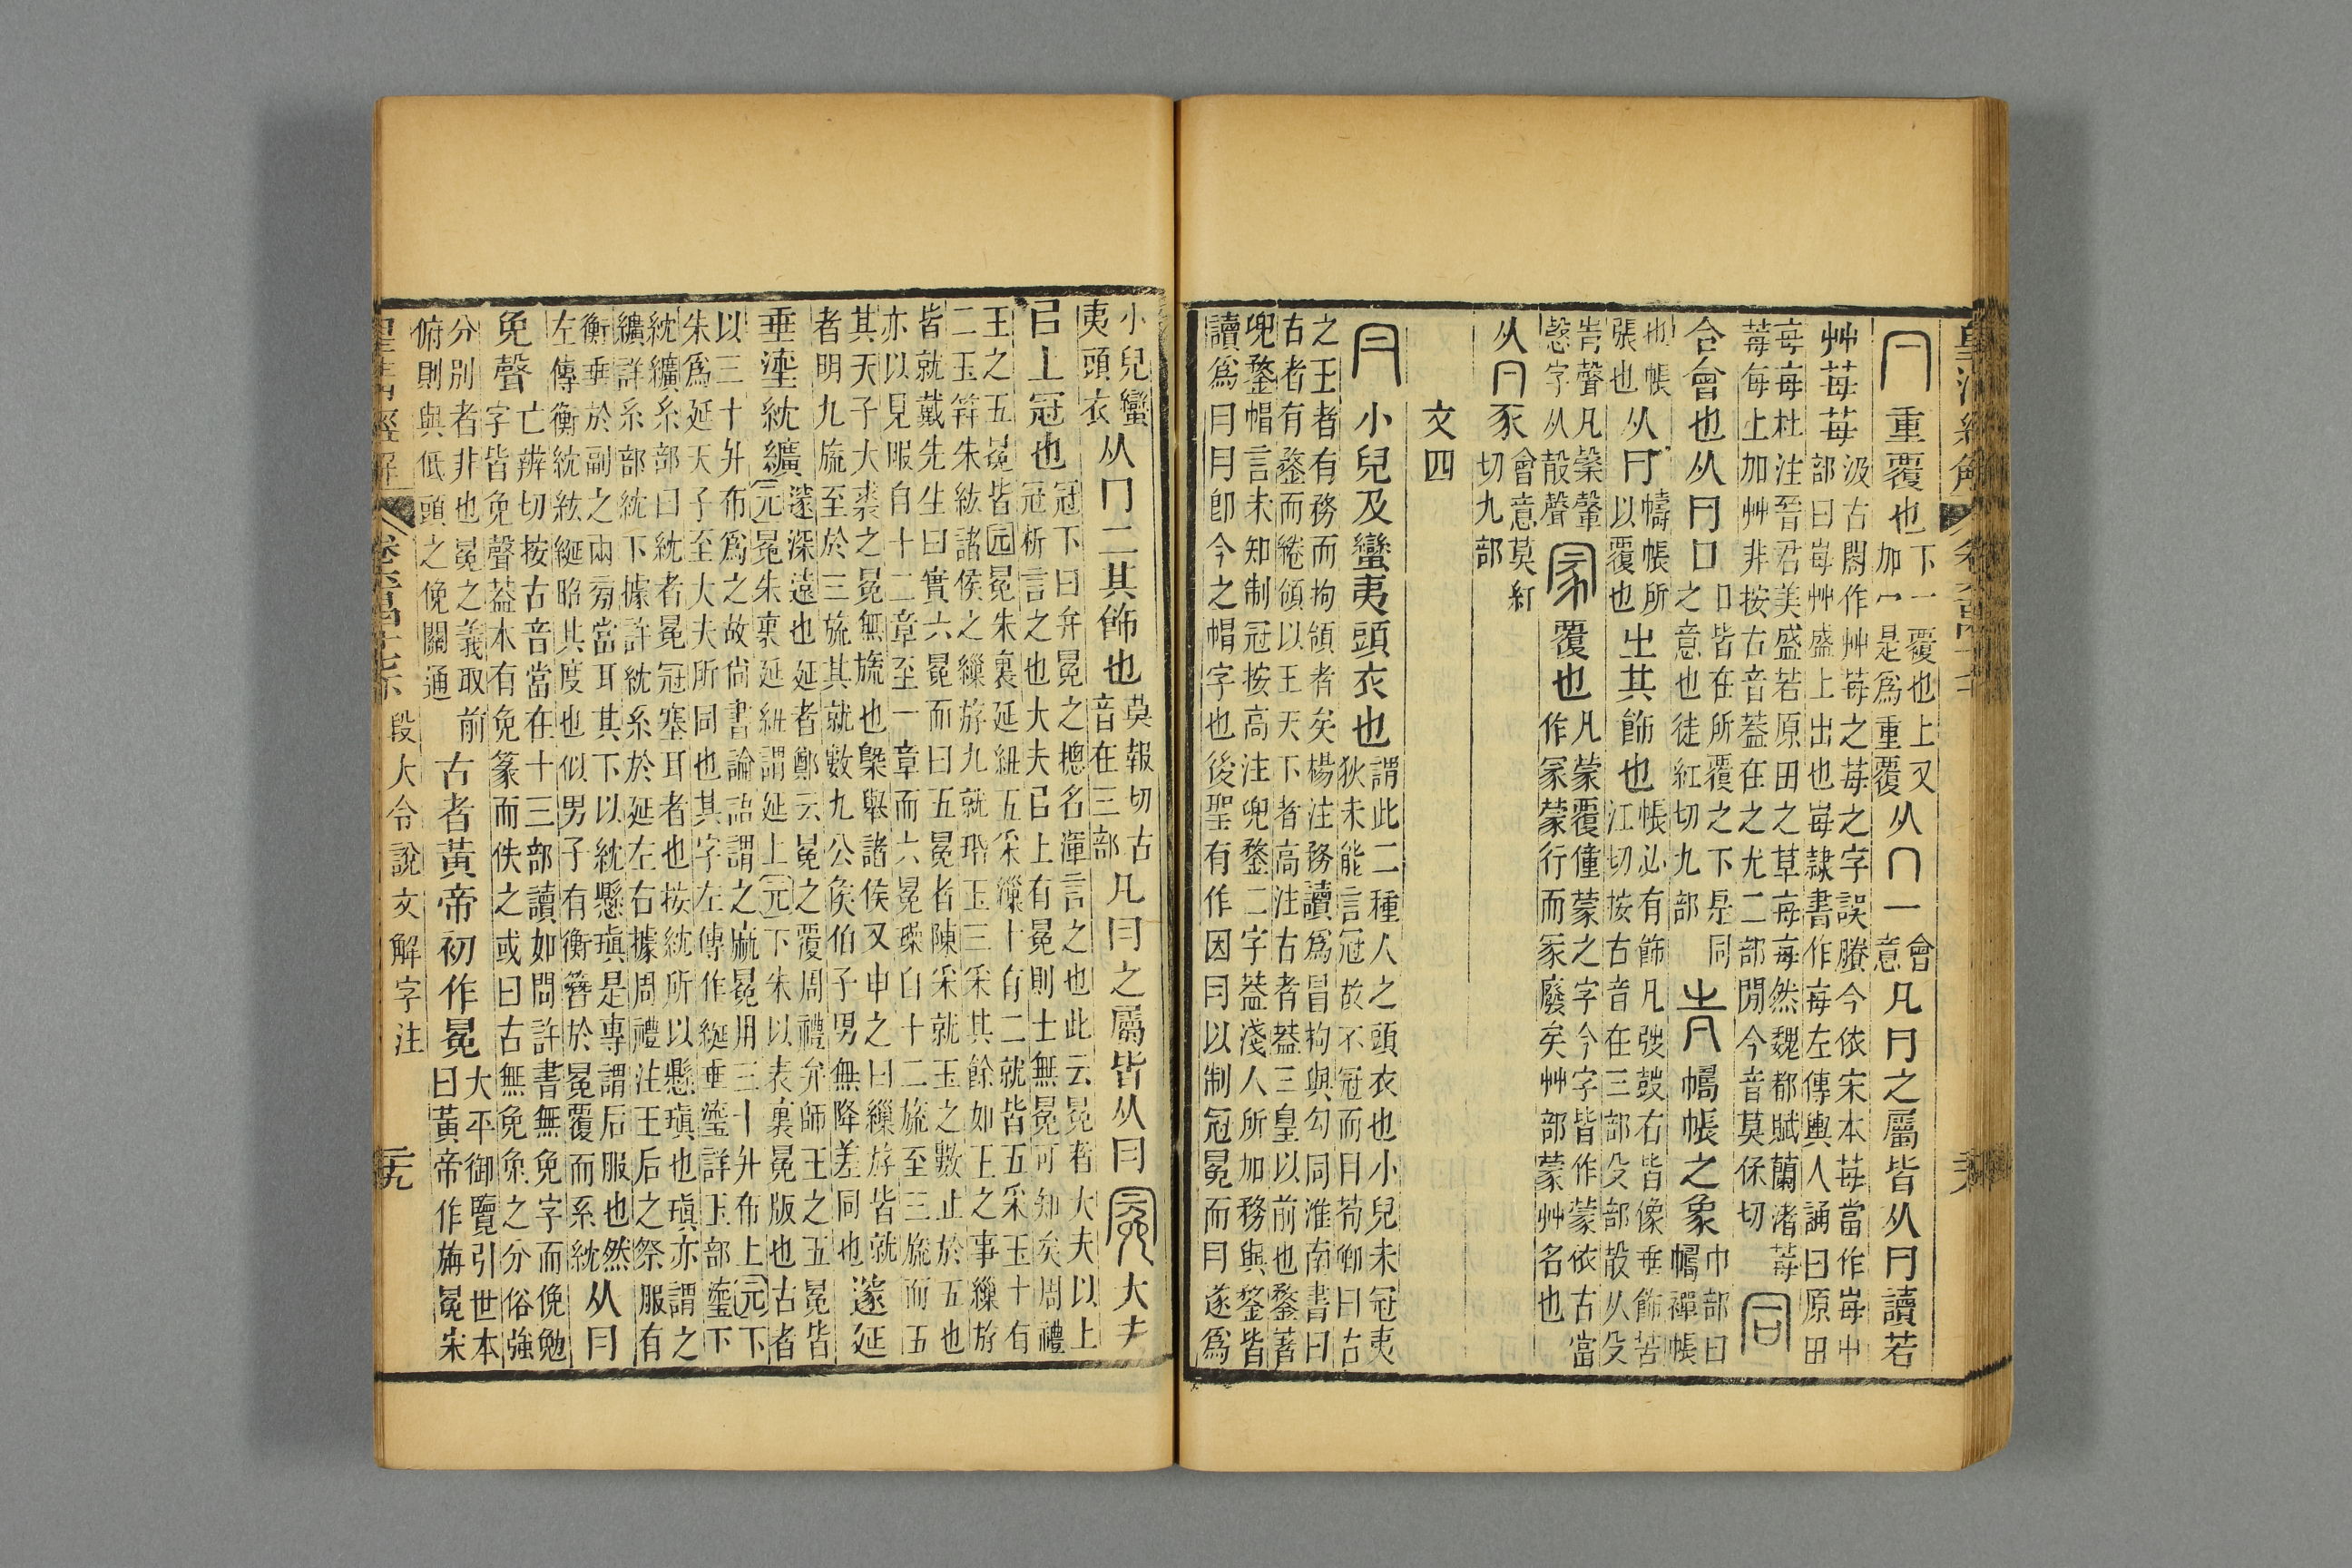 皇清經解 卷六百四十七
冃 重覆也下一覆也上又加冖是爲重覆从冂一會意凡冃之屬皆从冃讀若
艸苺苺汲古閣作艸苺之苺之字誤賸今依宋本苺當作每屮部曰每艸盛上出也每隸書作每左傳輿人誦曰原田
每每杜注晉君美盛若原田之草每每然魏都賦蘭渚苺苺每上加艸非按古音葢在之尤二部閒今音莫保切同
合會也从冃口口皆在所覆之下是同之意也徒紅切九部𡴂幬帳之象巾部曰幬襌帳
也帳張也从冃幬帳所以覆也㞢其飾也帳必有飾凡弢鼓右皆像垂飾苦江切按古音在三部殳部㱿从殳
𡴂聲凡慤字从㱿聲冡覆也凡蒙覆僮蒙之字今字皆作蒙依古當作冡蒙行而冡廢矣艸部蒙艸名也
从冃豕會意莫紅切九部
文四
冃 小兒及蠻夷頭衣也謂此二種人之頭衣也小兒未冠夷狄未能言冠故不冠而冃荀卿曰古
之王者有務而拘領者矣楊注務讀爲冒拘與勾同淮南書曰古者有鍪而綣領以王天下者高注古者葢三皇以前也鍪著
兜鍪帽言未知制冠按高注兜鍪二字葢淺人所加務與鍪皆讀爲冃冃卽今之帽字也後聖有作因冃以制冠冕而冃遂爲
小兒蠻夷頭衣从冂二其飾也莫報切古音在三部凡冃之屬皆从冃冕大夫
㠯上冠也冠下曰弁冕之總名渾言之也此云冕者大夫以上冠析言之也大夫㠯上有冕則士無冕可知矣周禮
王之五冕皆元冕朱裏延紐五采繅十有二就皆五采玉十有二玉笄朱紘諸侯之繅斿九就瑉玉三采其餘如王之事繅斿
皆就戴先生曰實六冕而曰五冕者陳采就玉之數止於五也亦以見服自十二章至一章而六冕璪自十二旒至三旒而五
其天子大裘之冕無旒也槩舉諸侯又申之曰繅斿皆就者明九旒至於三旒其就數九公矦伯子男無降差同也邃延
垂瑬紞纊邃深遠也延者鄭云冕之覆周禮弁師王之五冕皆元冕朱裏延紐謂延上元下朱以表裏冕版也古者
以三十升布爲之故尙書論語謂之麻冕用三十升布上元下朱爲延天子至大夫所同也其字左傳作綖垂瑬詳玉部瑬下
紞纊糸部曰紞者冕冠塞耳者也按紞所以懸瑱也瑱亦謂之纊詳糸部紞下據許紞系於延左右據周禮注王后之祭服有
衡垂於副之兩旁當耳其下以紞懸瑱是專謂后服也然左傳衡紞紘綖昭其度也似男子有衡簪於冕覆而系紞从冃
免聲亡辨切按古音當在十三部讀如問許書無免字而俛勉字皆免聲葢本有免篆而佚之或曰古無免兔之分俗強
分別者非也冕之義取前俯則與低頭之俛關通古者黃帝初作冕大平御覽引世本曰黃帝作旃冕宋
皇清經解 卷六百四十七 段大令說文解字注